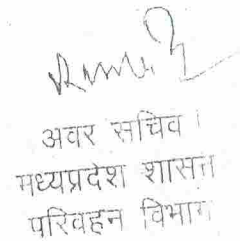 अवर सचिव ।
मध्यप्रदेश शासन
परिवहन विभाग